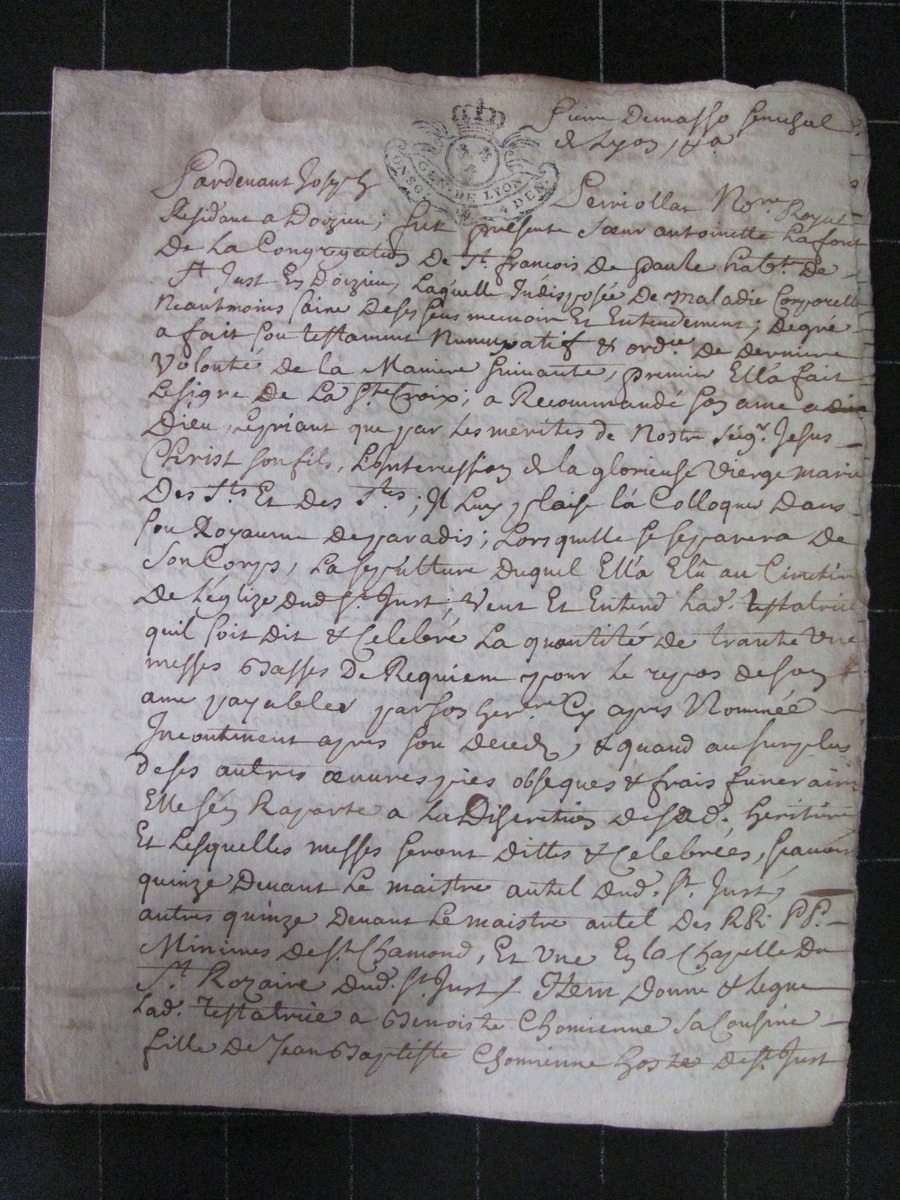 Pierre Dumasso senechal
de Lyon, &a
GEN. DE LYON
Pardevant Joseph Perriollat Nore. Royal
Residant a Doizieu; fut presente Sœur antoinette Lafont
De La Congregation De St. francois De paule habte. De
St Just En Doizieu, Laquelle Indisposée De maladie Corporelle
Neantmoins saine De ses sens memoire Et Entendement; De gré
a fait son testament Nuncupatif & ordre. De derniere
Volonté De la Maniere suivante, premier Ell'a fait
Le signe De La Ste Croix; a Recommandé son ame a
Dieu, Le priant que par Les merites de Nostre seigr. Jesus
Christ son fils, L'intercession de la glorieuse Vierge marie
Des Sts Et Des Stes; Il Luy plaise la Colloquer Dans
son Royaume de paradis; Lorsquelle se separera De
Son Corps, La sepulture duquel Ell'a Elû au Cimetiere
De L'eglize dud. St. Just; Veut Et Entend Lad. testatrice
quil soit Dit & Celebré La quantité De trante Une
messes Basses De Requiem pour le repos de son
ame payables par son herre. Cy apres Nommée
Incontinent apres son Decedz, & quand au surplus
de ses autres œuvres pies obseques & frais funeraires
Elle s'en Raporte a La Discretion de sad. heritiere
Et Lesquelles messes seront dittes & Celebrées, scavoir
quinze Devant Le maistre autel dud. St. Just,
autres quinze Devant Le maistre autel Des RR. PP.
Minimes de St. Chamond, Et Une En la Chapelle Du
St. Rozaire dud. St. Just / Item Donne & Legue
Lad. Testatrice a Benoiste Chomienne sa Cousine
fille De Jean Baptiste Chomienne hoste de St. Just